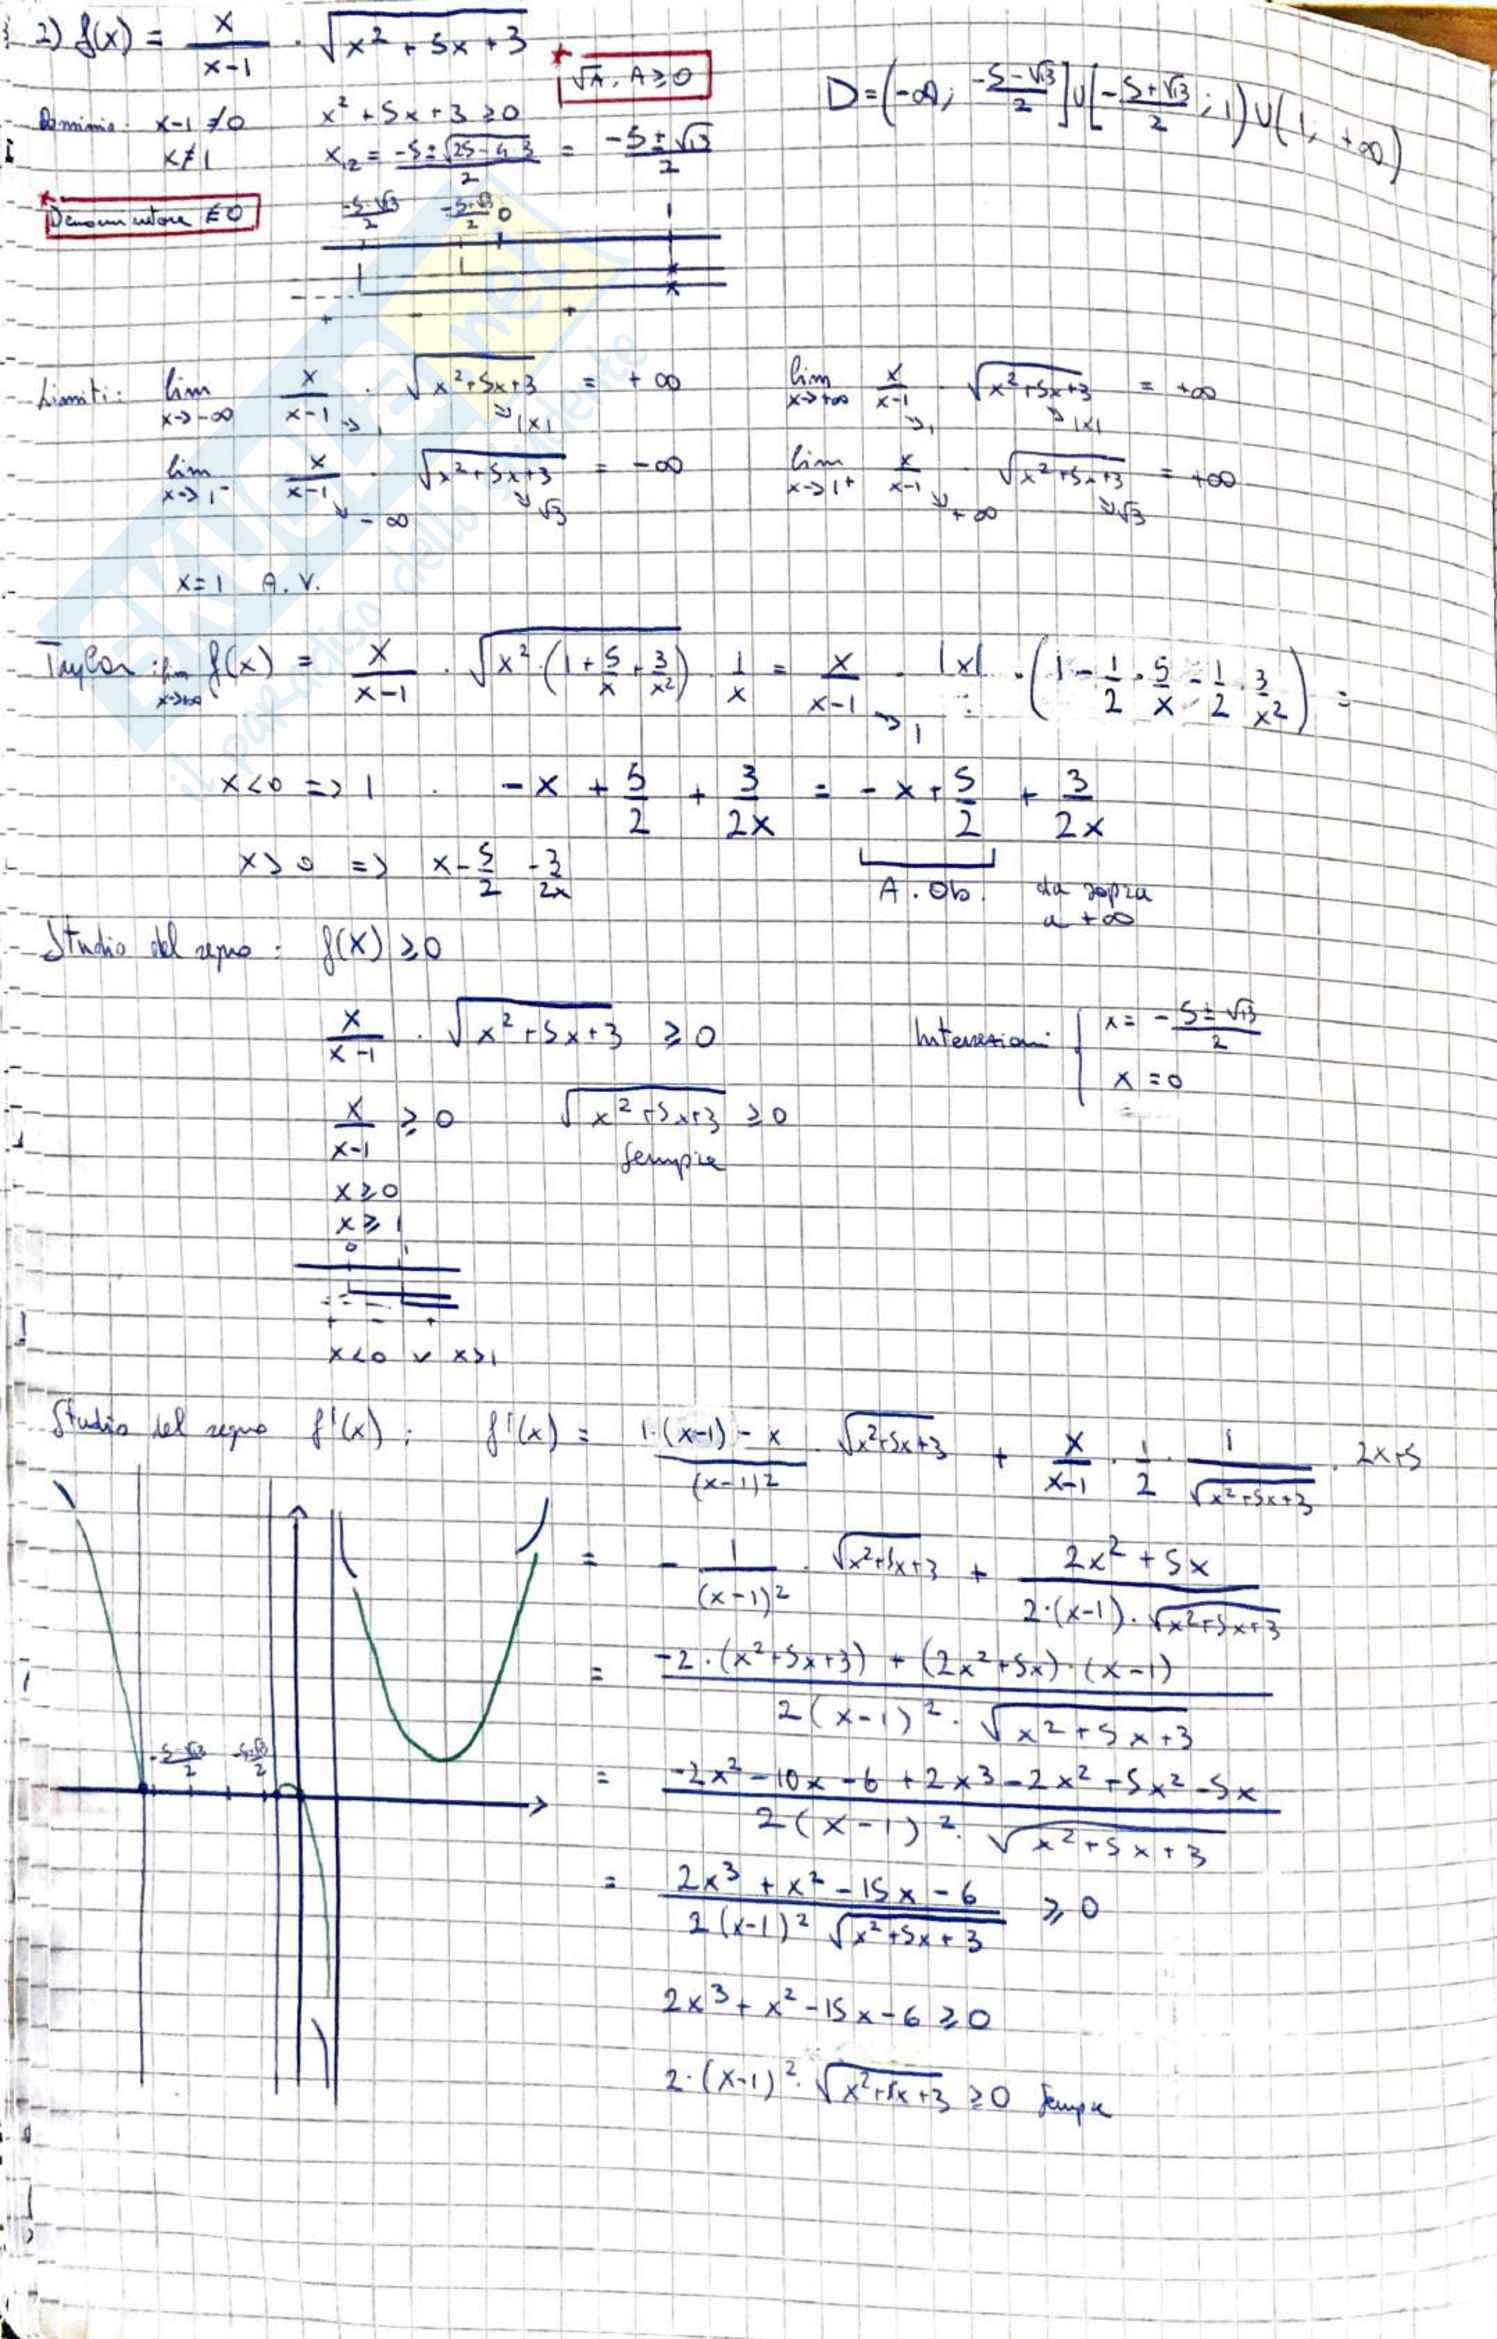 2) f(x) = x/(x-1) · √(x² + 5x + 3)
* √A, A ≥ 0
D = (-∞; (-5-√13)/2] ∪ [(-5+√13)/2; 1) ∪ (1, +∞)
Dominio: x-1 ≠ 0   x² + 5x + 3 ≥ 0
x ≠ 1   x₁₂ = (-5 ± √(25-4·3))/2 = (-5 ± √13)/2
* Denominatore ≠ 0
(-5-√13)/2   (-5+√13)/2   0   1
+ - +
Limiti: lim x→-∞ x/(x-1) →1 · √(x²+5x+3) →|x| = +∞   lim x→+∞ x/(x-1) →1 · √(x²+5x+3) →|x| = +∞
lim x→1⁻ x/(x-1) →-∞ · √(x²+5x+3) →√3 = -∞   lim x→1⁺ x/(x-1) →+∞ · √(x²+5x+3) →√3 = +∞
x=1 A.V.
Taylor: lim x→±∞ f(x) = x/(x-1) · √(x²·(1 + 5/x + 3/x²)) · 1/x = x/(x-1) →1 · |x| · (1 - 1/2 · 5/x - 1/2 · 3/x²) =
x<0 => 1 · -x + 5/2 + 3/2x = -x + 5/2 + 3/2x
x>0 => x - 5/2 - 3/2x   A. Ob. da sopra
a +∞
Studio del segno: f(x) ≥ 0
x/(x-1) · √(x²+5x+3) ≥ 0   Intersezioni { x = (-5±√13)/2
x = 0
x/(x-1) ≥ 0   √(x²+5x+3) ≥ 0
Sempre
x ≥ 0
x ≥ 1
0 1
+ - +
x<0 ∨ x>1
Studio del segno f'(x): f'(x) = (1·(x-1) - x)/(x-1)² · √(x²+5x+3) + x/(x-1) · 1/2 · 1/√(x²+5x+3) · 2x+5
= - 1/(x-1)² · √(x²+5x+3) + (2x² + 5x)/(2·(x-1)·√(x²+5x+3))
= (-2·(x²+5x+3) + (2x²+5x)·(x-1))/(2(x-1)²·√(x²+5x+3))
(-5-√13)/2   (-5+√13)/2
= (-2x² - 10x - 6 + 2x³ - 2x² + 5x² - 5x)/(2(x-1)²·√(x²+5x+3))
= (2x³ + x² - 15x - 6)/(2(x-1)² √(x²+5x+3)) ≥ 0
2x³ + x² - 15x - 6 ≥ 0
2·(x-1)²·√(x²+5x+3) ≥ 0 Sempre
SKUOLA.net
il paradiso dello studente